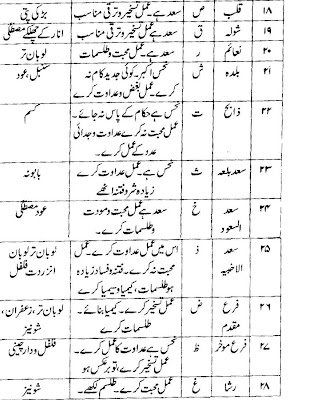 ۱۸ قلب ص سعد ہے عمل تسخیر و ترقی مناسب بڑ کی پتی
۱۹ شولہ ق سعد ہے عمل تسخیر و ترقی مناسب انار کے چھلکے مصطگی
۲۰ نعائم ر سعد ہے۔ عمل محبت و طلسمات لوبان تر
۲۱ بلدہ ش نحس اکبر۔ کوئی جدید کام نہ سنبل، عود
کرے۔ عمل بغض و عداوت کرے
۲۲ ذابح ت نحس ہے حکام کے پاس نہ جائے۔ کسم
عمل محبت نہ کرے عداوت و جدائی
عدد کے عمل کرے۔
۲۳ سعد بلعہ ث نحس ہے۔ عمل عداوت کرے بابونہ
زیادہ شر و فتنہ اٹھے
۲۴ سعد خ سعد ہے عمل محبت و مودت عود مصطگی
السعود و طلسمات کرے۔
۲۵ سعد ذ اس میں عمل عداوت کرے۔ عمل لوبان تر لوبان
الاخبیہ محبت نہ کرے۔ فتنہ و فساد زیادہ انزردت فلفل
ہو طلسمات، کیمیا و سیمیا کرے
۲۶ فرع ض عمل تسخیر کرے۔ کیمیا بنائے۔ لوبان تر، زعفران،
مقدم طلسمات کرے شونیز
۲۷ فرع موخر ظ نحس ہے عداوت کا عمل کرے۔ فلفل و دارچینی
عمل تسخیر کرے، تو برعکس ہو
۲۸ رشا غ عمل محبت کرے۔ طلسم لکھے۔ شونیز